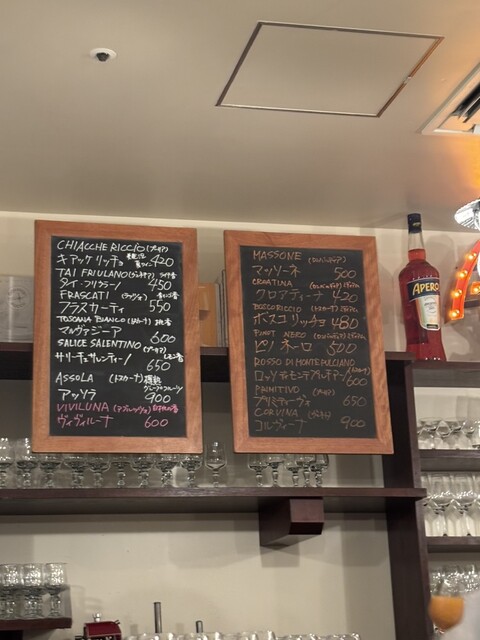 CHIACCHERICCIO (プーリア)
キアッケリッチョ 420
TAI FRIULANO (ヴェネト)
タイ・フリウラーノ 450
FRASCATI (ラツィオ)
フラスカーティ 550
TOSCANA BIANCO (トスカーナ)
マルヴァジーア 600
SALICE SALENTINO (プーリア)
サリーチェサレンティーノ 650
ASSOLA (トスカーナ)
アッソラ 900
VIVILUNA
ヴィヴィルーナ 600
MASSONE
マッソーネ 500
CROATINA
クロアティーナ 420
BOSCO RICCIO (トスカーナ)
ボスコリッチョ 480
PINOT NERO
ピノ ネーロ 500
ROSSO DI MONTEPULCIANO
ロッソディモンテプルチアーノ 600
PRIMITIVO (プーリア)
プリミティーヴォ 650
CORVINA (ヴェネト)
コルヴィーナ 900
APEROL